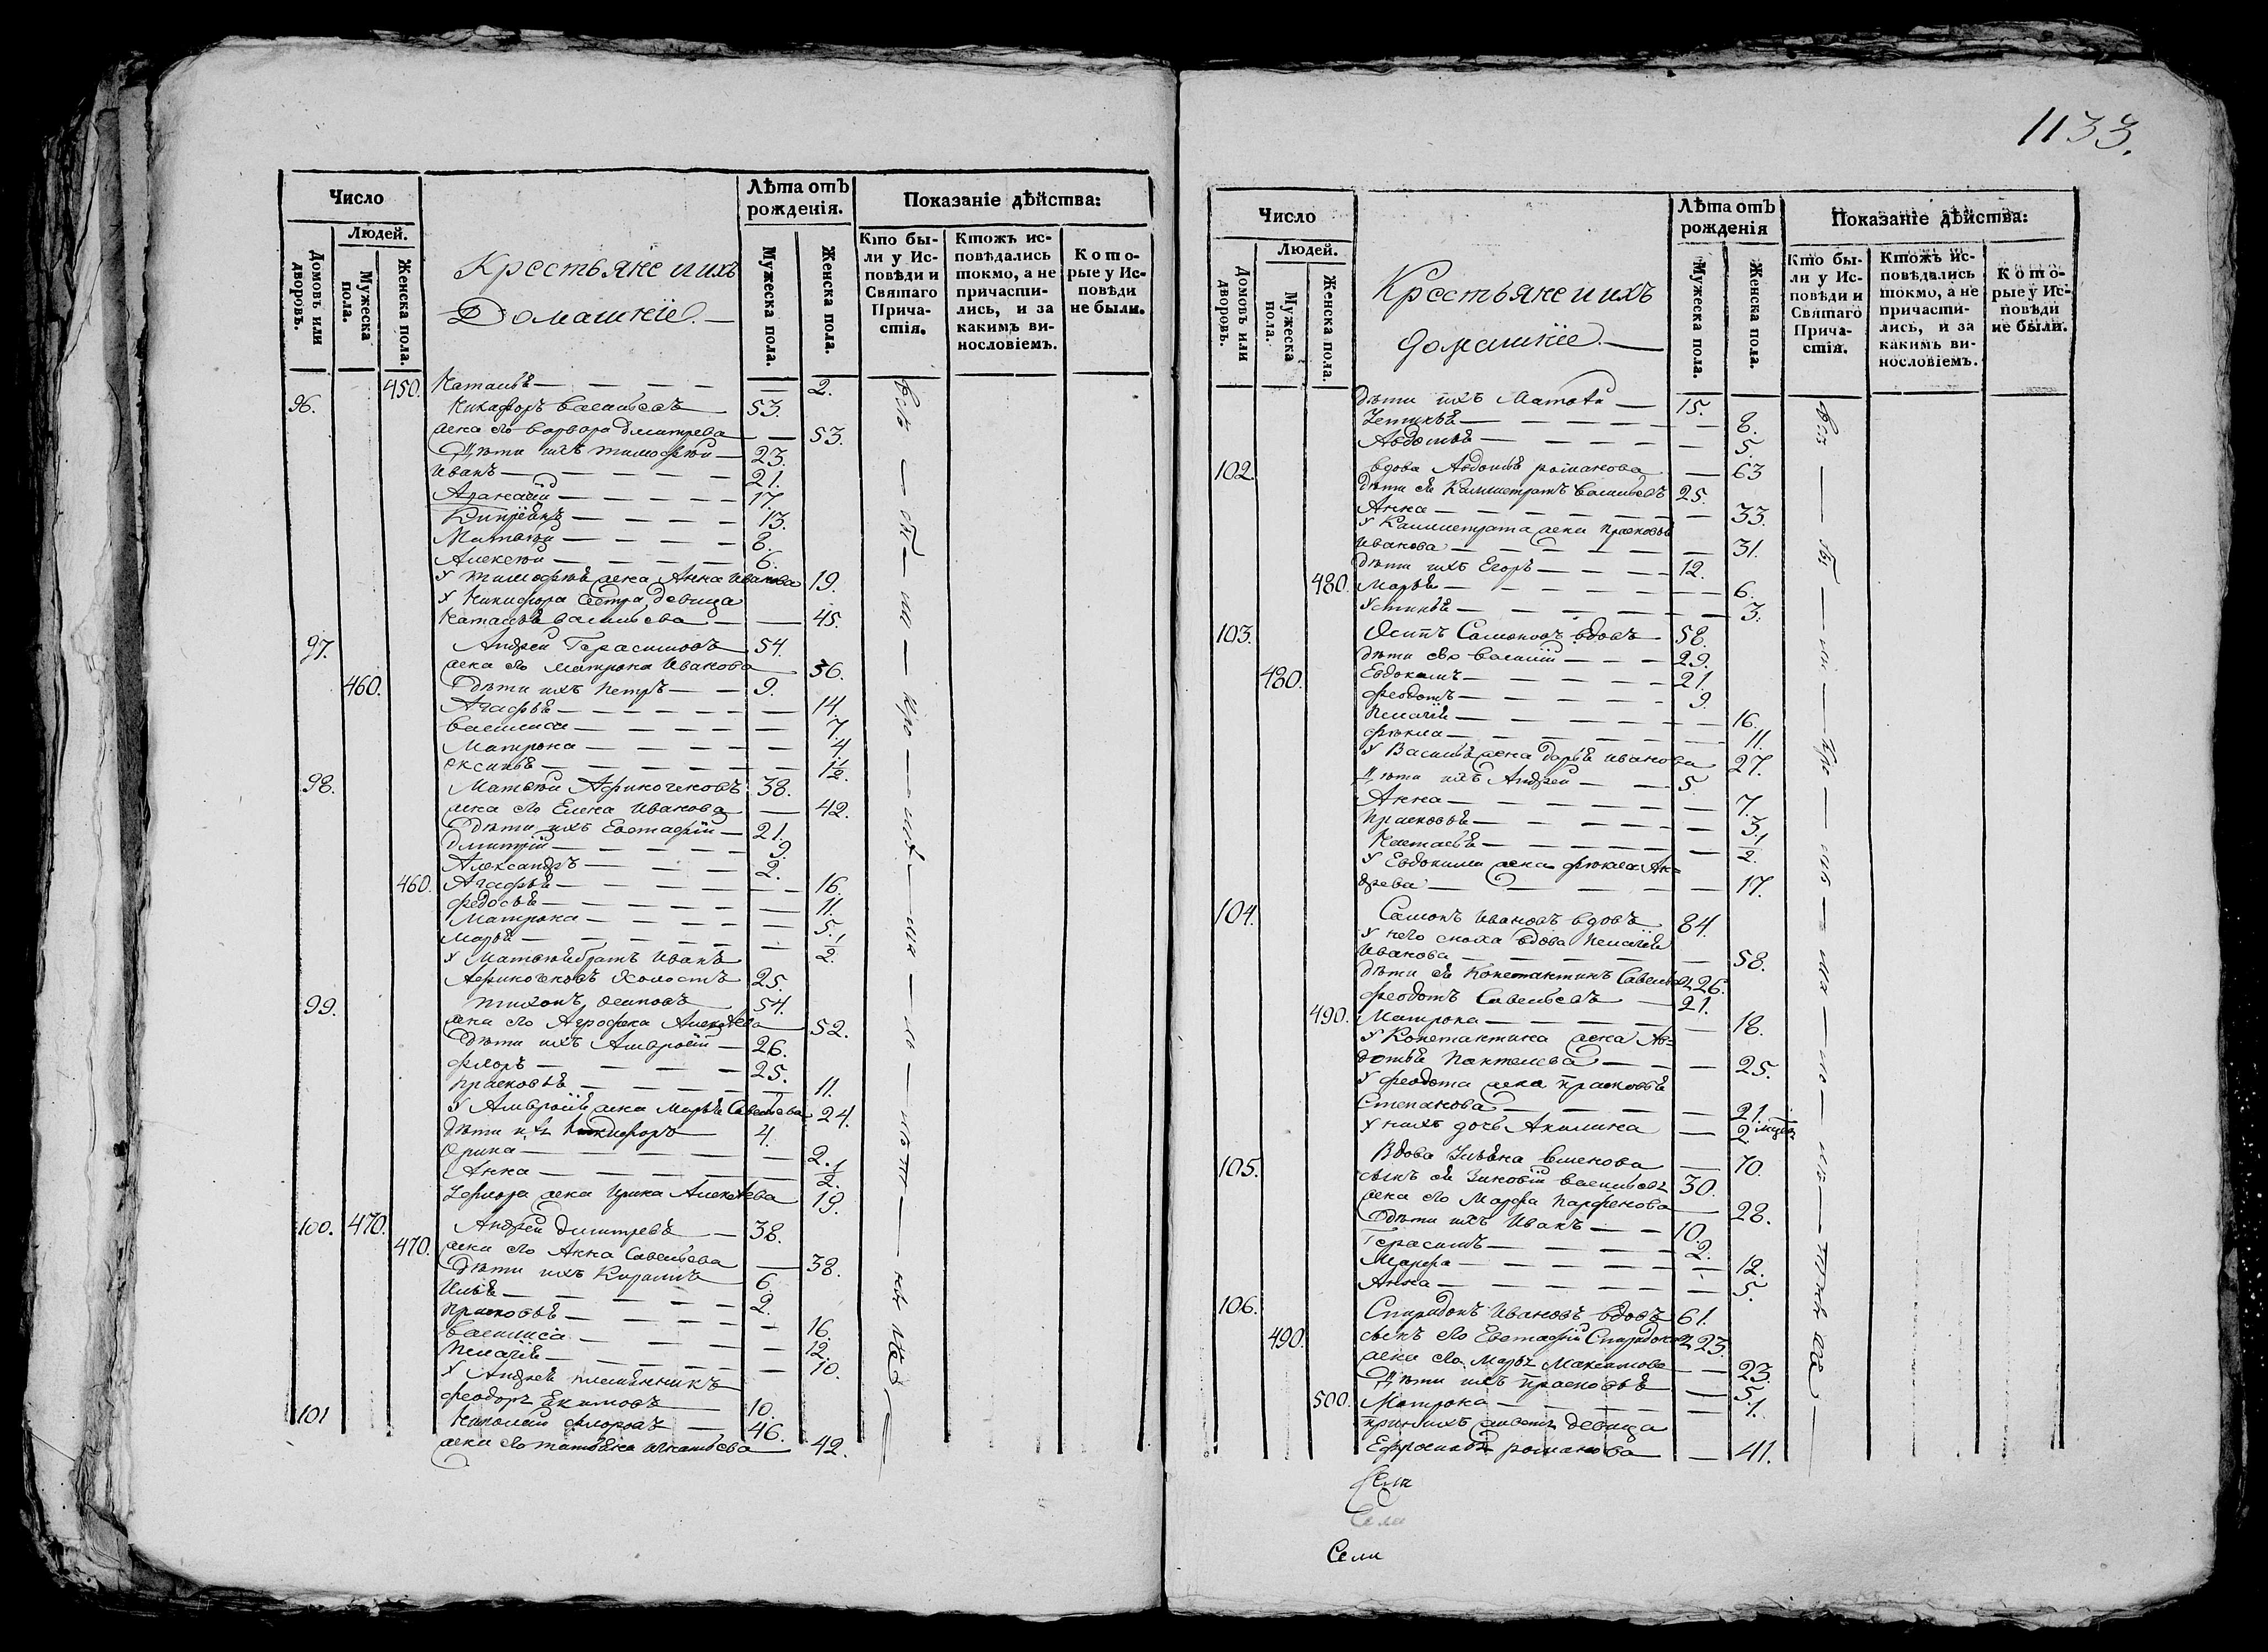 1133.
Число
Лѣта отъ рожденія.
Показаніе дѣйства:
Людей.
Домовъ или дворовъ.
Мужеска пола.
Женска пола.
Крестьяне и ихъ
Домашніе.
Мужеска пола.
Женска пола.
Кто были у Исповѣди и Святаго Причастія.
Ктожъ исповѣдались токмо, а не причастились, и за какимъ винословіемъ.
Которые у Исповѣди не были.
450. Наталья — 2.
96. Никифоръ Васильевъ 53.
жена его Варвара Дмитрева — 53.
Дѣти ихъ Тимофѣй — 23.
Иванъ — 21.
17.
Кипріянъ — 13.
Матвѣй — 8.
Алексѣй — 6.
У Тимофѣя жена Анна Иванова 19.
У Никифора сестра девица
Наталья Васильева — 45.
97. Андрей Герасимовъ 54.
жена его Матрона Иванова 36.
460. Дѣти ихъ Петръ — 9.
Агафья — 14.
Василиса — 7.
Матрона — 4
Ксинья — 1½.
98. Матвѣй Афиногеновъ 38.
жена его Елена Иванова — 42.
Дѣти ихъ Евстафій — 21.
Дмитрій — 9.
Александръ — 2.
460. Агафья — 16.
Федосья — 11.
Матрона — 5.
Марья — ½.
У Матвѣя братъ Иванъ
Афиногеновъ холостъ 25.
99. Тихонъ Осиповъ 54.
жена его Агрофена Алексѣева 52.
Дѣти ихъ Амвросій — 26.
Флоръ — 25.
Прасковья — 11.
У Амвросія жена Марья Савельева 24.
Дѣти ихъ Никифоръ 4.
Орина — 2.
Анна — ½.
У Флора жена Ирина Алексѣева 19.
100. 470. Андрей Дмитревъ — 38.
470. жена его Анна Савельева — 38.
Дѣти ихъ 6.
Илья — 2.
Прасковья — 16.
Василиса — 12.
Пелагія — 10.
У Андрея племянникъ
Феодоръ Екимовъ 10.
101 Николай Флоровъ — 46.
жена его Татьяна Игнатьева 42.
Число
Лѣта отъ рожденія
Показаніе дѣйства:
Людей.
Домовъ или дворовъ.
Мужеска пола.
Женска пола.
Крестьяне и ихъ
домашніе.
Мужеска пола.
Женска пола.
Кто были у Исповѣди и Святаго Причастія.
Ктожъ исповѣдались токмо, а не причастились, и за какимъ винословіемъ.
Которые у Исповѣди не были.
Дѣти ихъ Матвѣй — 15.
Устинья — 8.
Авдотья — 5.
102. Вдова Авдотья Романова — 63
Дѣти ея Каллистратъ Васильевъ 25.
Анна — 33.
У Каллистрата жена Прасковья
Иванова — 31.
Дѣти ихъ Егоръ — 12.
480. Марья — 6.
Устинья — 3.
103. Осипъ Самоновъ вдовъ 58.
Дѣти его Василій — 29.
480. Евдокимъ — 21.
Феодотъ — 9.
Пелагія — 16.
Фекла — 11.
У Василья жена Дарья Иванова 27.
Дѣти ихъ Андрей — 5.
Анна — 7.
Прасковья — 3.
Настасья — ½.
У Евдокима жена Фекла Ан=
древа — 17.
104. Самонъ Ивановъ вдовъ 84.
У него сноха вдова Пелагія
Иванова — 58.
Дѣти ея Константинъ Савельевъ 26.
Феодотъ Савельевъ — 21.
490. Матрона — 18.
У Константина жена Ав=
дотья Пантелева — 25.
У Феодота жена Прасковья
Степанова — 21.
У нихъ дочь Акилина — 2.
105. Вдова Ульяна Семенова — 70.
сынъ ея Зиновій Васильевъ 30.
жена его Марфа Парфенова 28.
Дѣти ихъ Иванъ — 10.
Герасимъ — 2.
Марфа — 12.
Анна — 5.
106. Спиридонъ Ивановъ вдовъ 61.
490. сынъ его Евстафій Спиридоновъ 23.
жена его Марья Максимова — 23.
Дѣти ихъ Прасковья — 5.
500. Матрона — 1.
при нихъ живетъ девица
Ефросинья Романова — 41.
Села
Села
Села